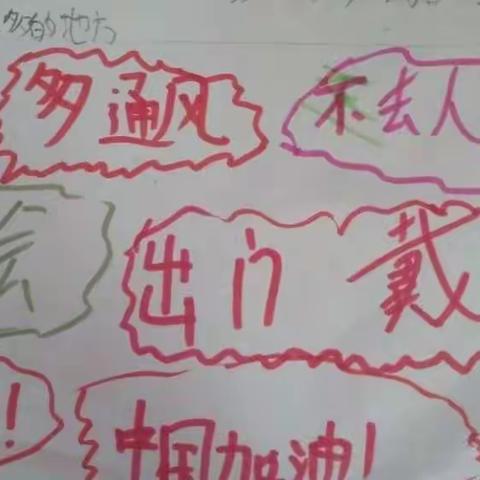 多的地方
多通风
不去人
会
出门 戴
!
中国加油!